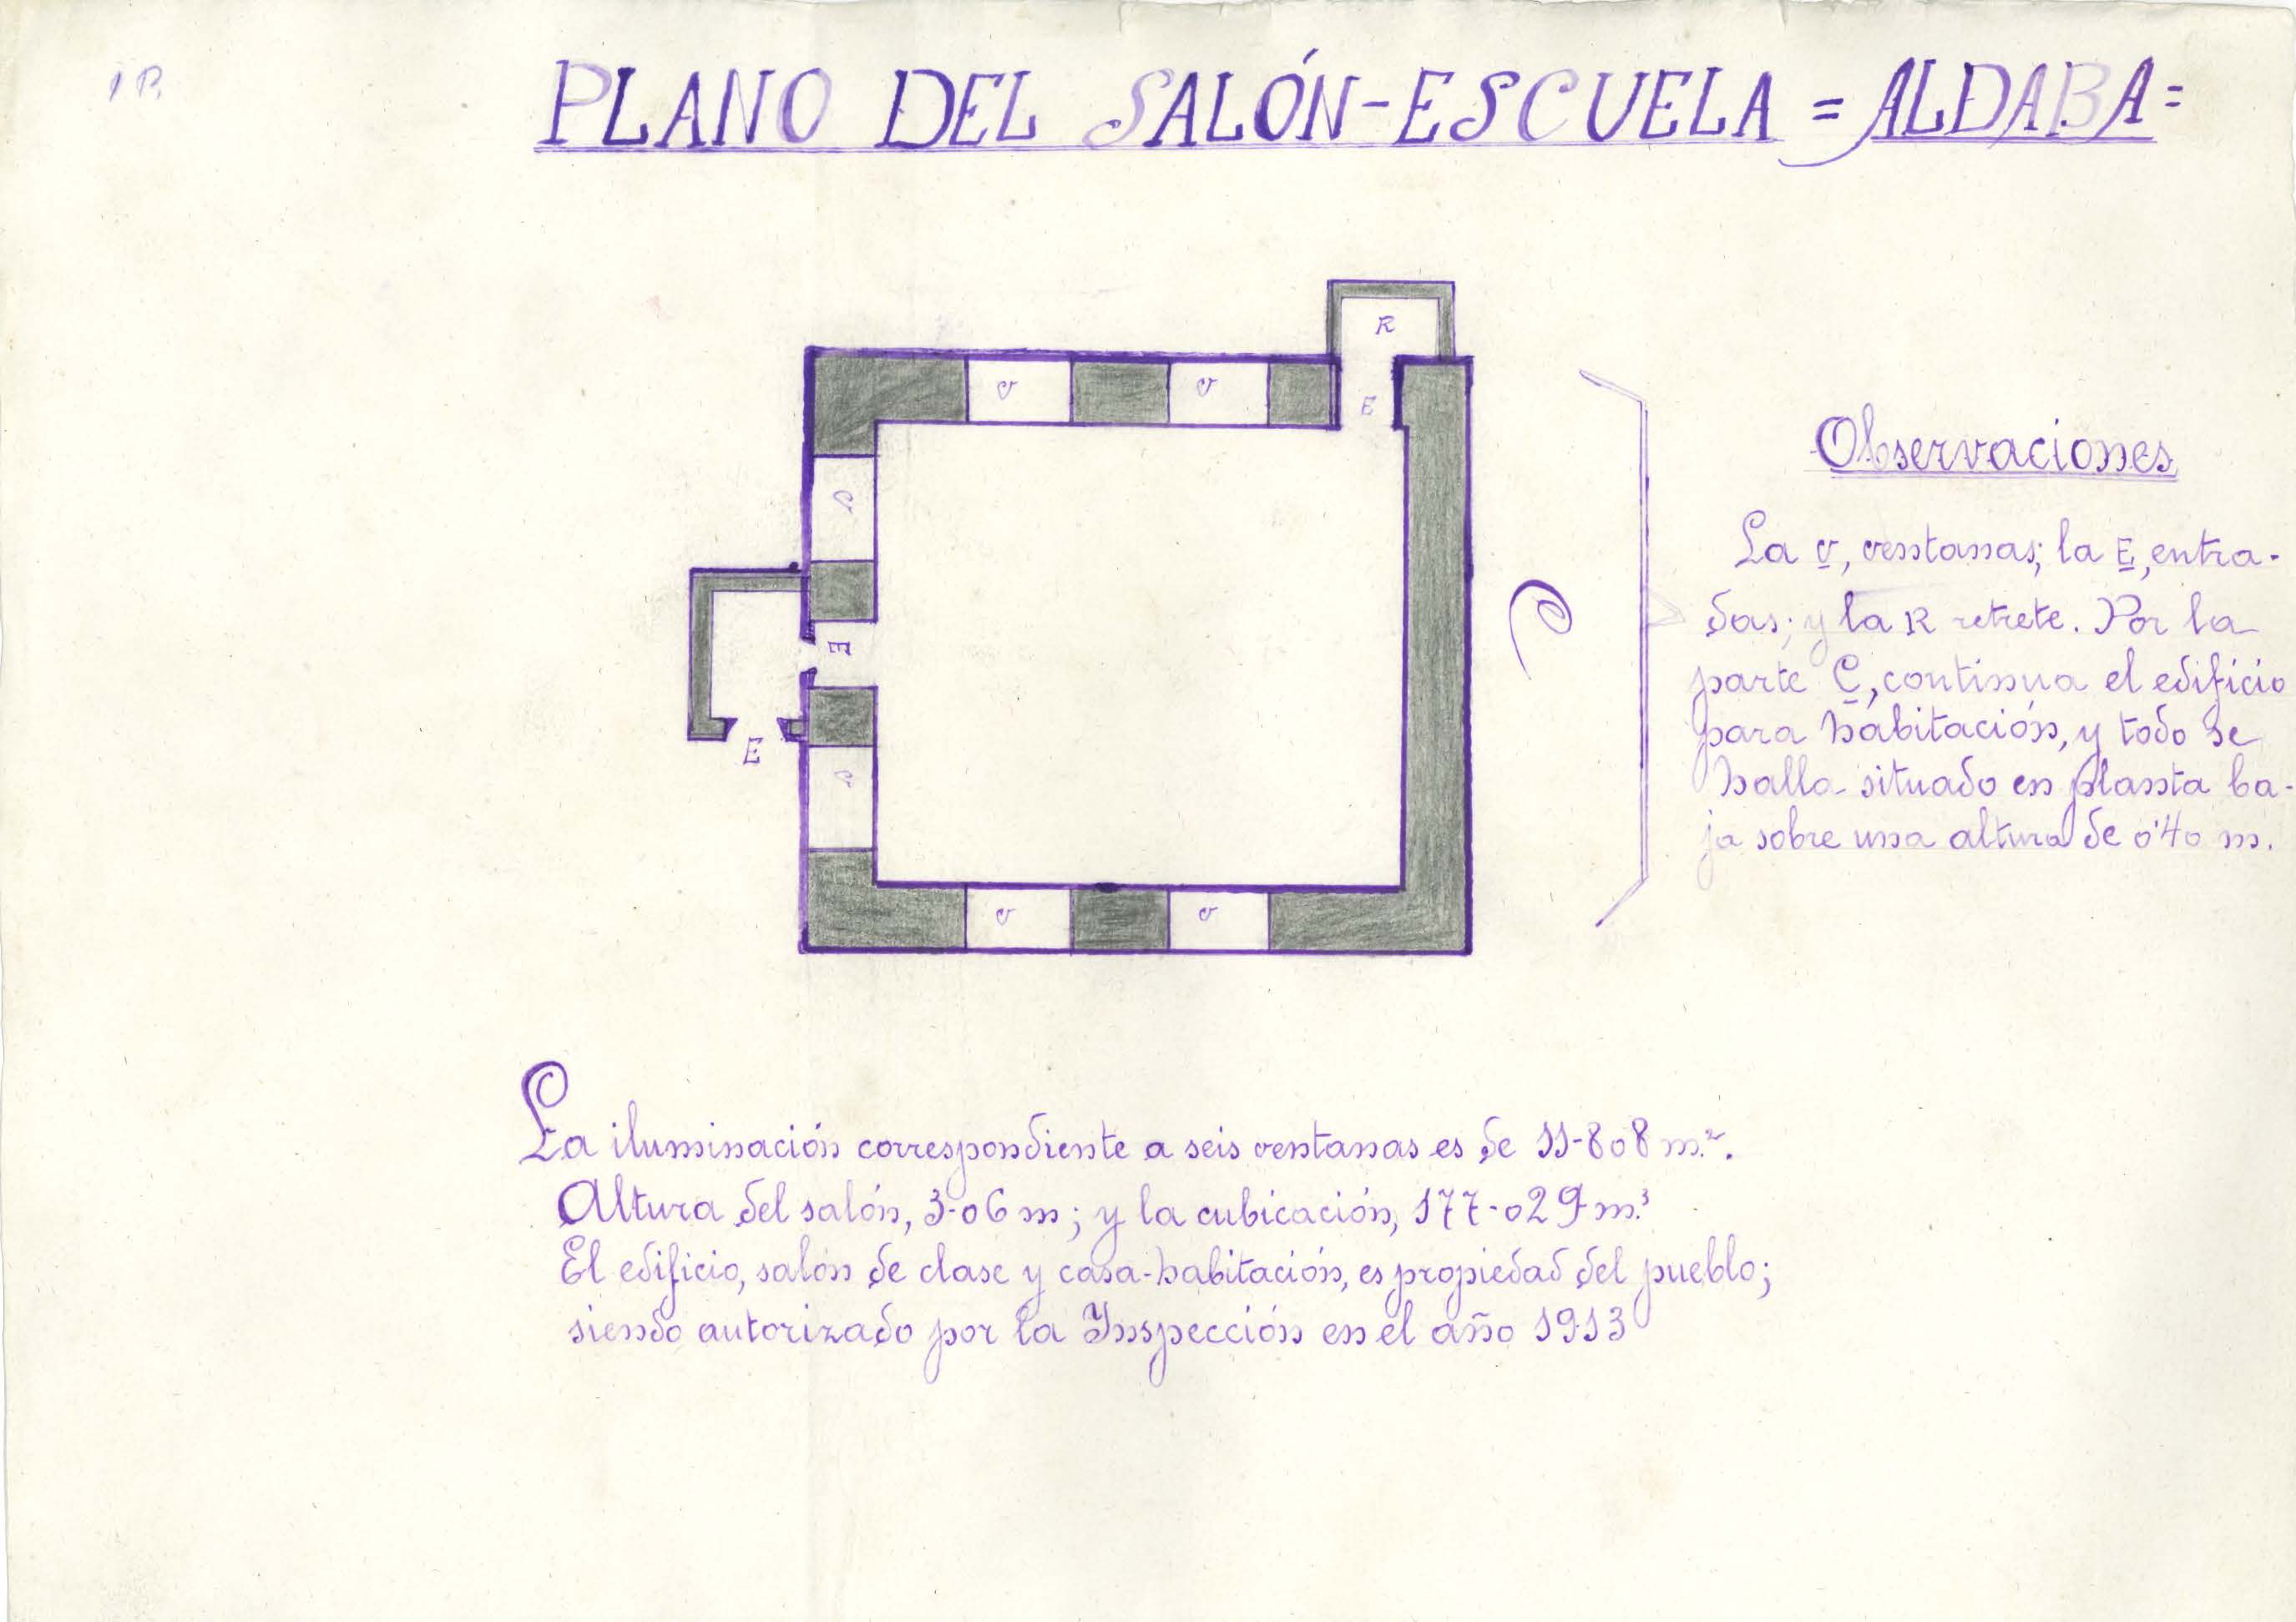 1B
PLANO DEL SALÓN-ESCUELA = ALDABA =
R
v
v
E
v
E
E
v
v
v
C
Observaciones
La v, ventanas; la E, entra-
das; y la R retrete. Por la
parte C, continua el edificio
para habitación, y todo se
halla situado en planta ba-
ja sobre una altura de 0'40 m.
La iluminación correspondiente a seis ventanas es de 11-808 m.².
Altura del salón, 3-06 m; y la cubicación, 177-029 m.³
El edificio, salón de clase y casa-habitación, es propiedad del pueblo;
siendo autorizado por la Inspección en el año 1913